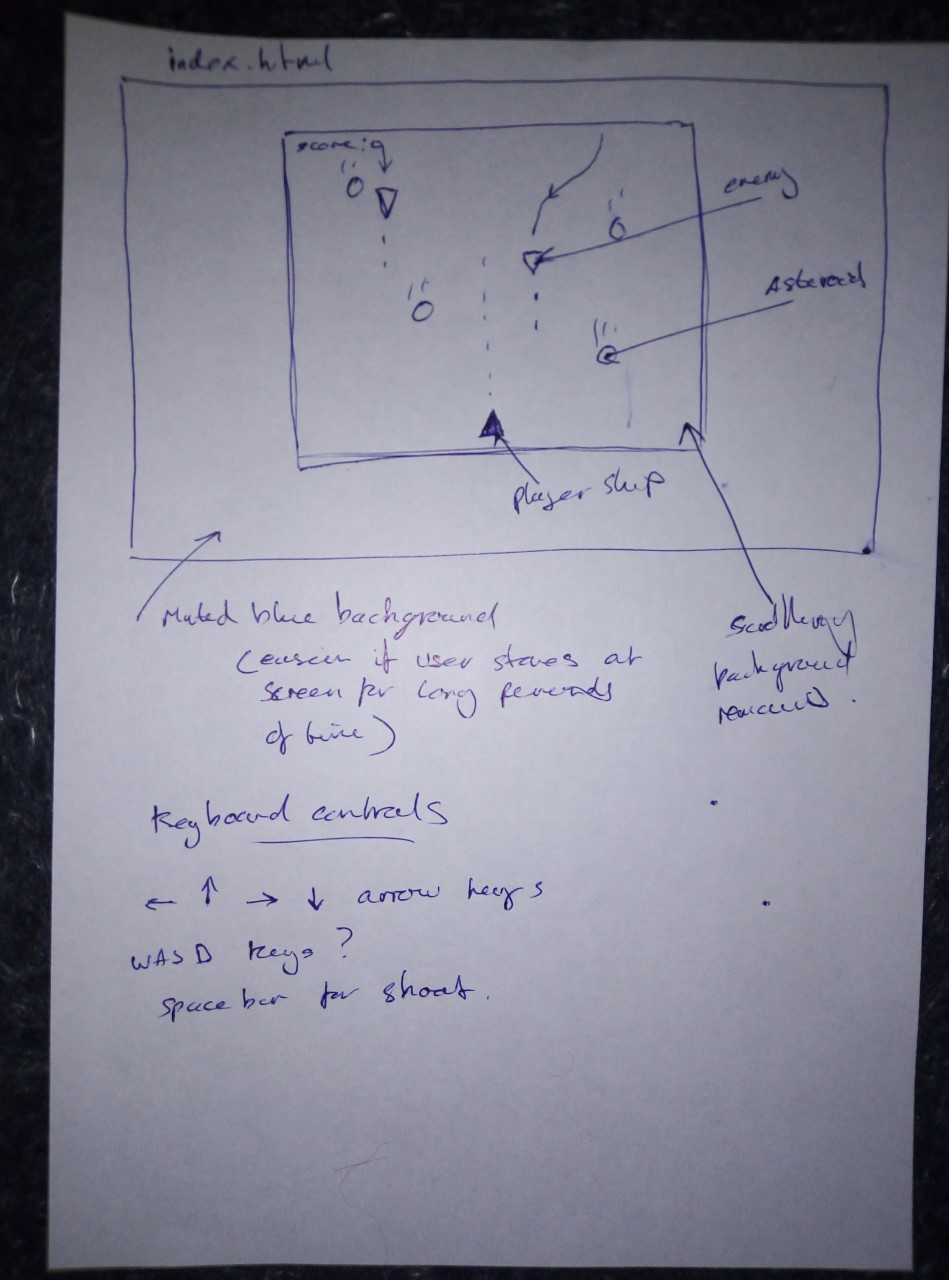 index.html
score: 9
enemy
Asteroid
player ship
Muted blue background
(easier if user stares at
screen for long periods
of time)
Scrolling
background
Keyboard controls
← ↑ → ↓ arrow keys
WASD keys?
space bar for shoot.